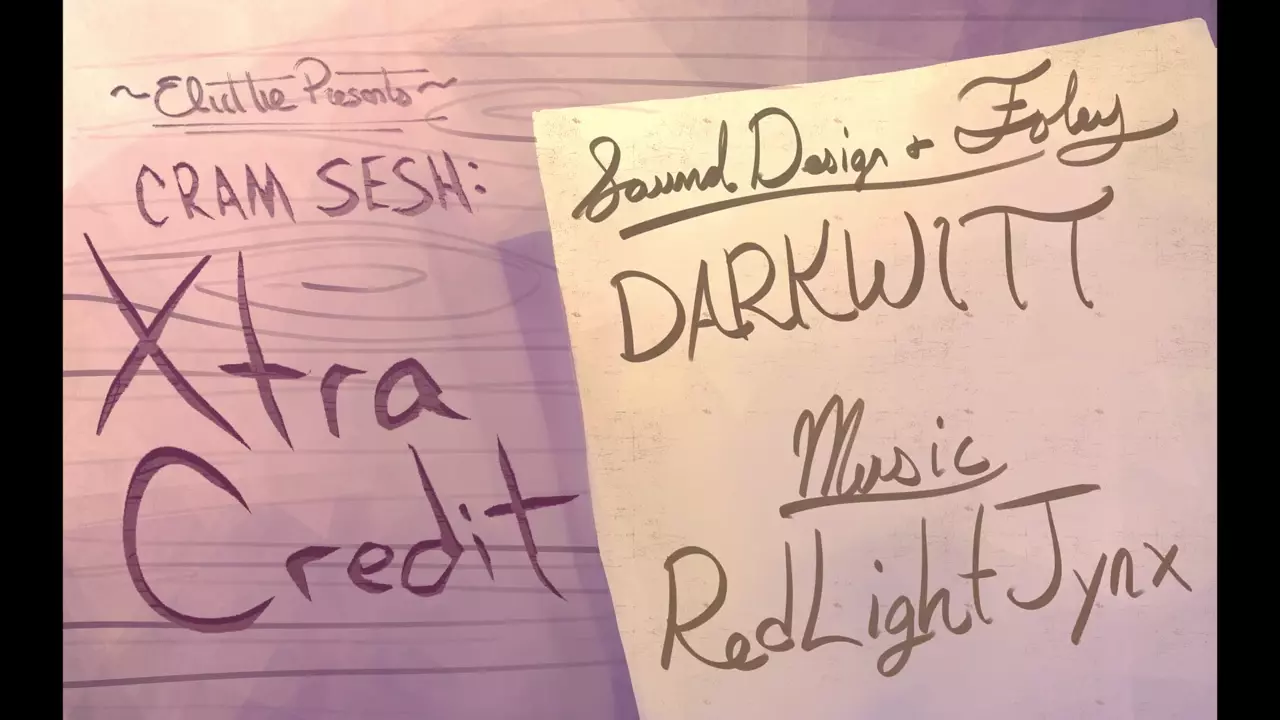 ~ Presents ~
CRAM SESH:
Xtra
Credit
Sound Design + Foley
DARKWITT
Music
RedLightJynx